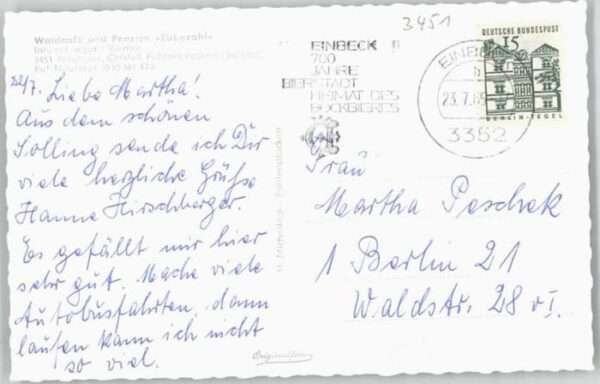 Waldcafé und Pension »Rübezahl«
3451
22/7. Liebe Martha!
Aus dem schönen
Solling sende ich Dir
viele herzliche Grüße
Hanne Hirschberger.
Es gefällt mir hier
sehr gut. Mache viele
Autobusfahrten, dann
laufen kann ich nicht
so viel.
3451
EINBECK
700
JAHRE
BIERSTADT
HEIMAT DES
BOCKBIERES
EINBECK
b
23.7.65
3352
DEUTSCHE BUNDESPOST
15
BERLIN-TEGEL
Frau
Martha Peschek
1 Berlin 21
Waldstr. 28 v I.
Originalfoto